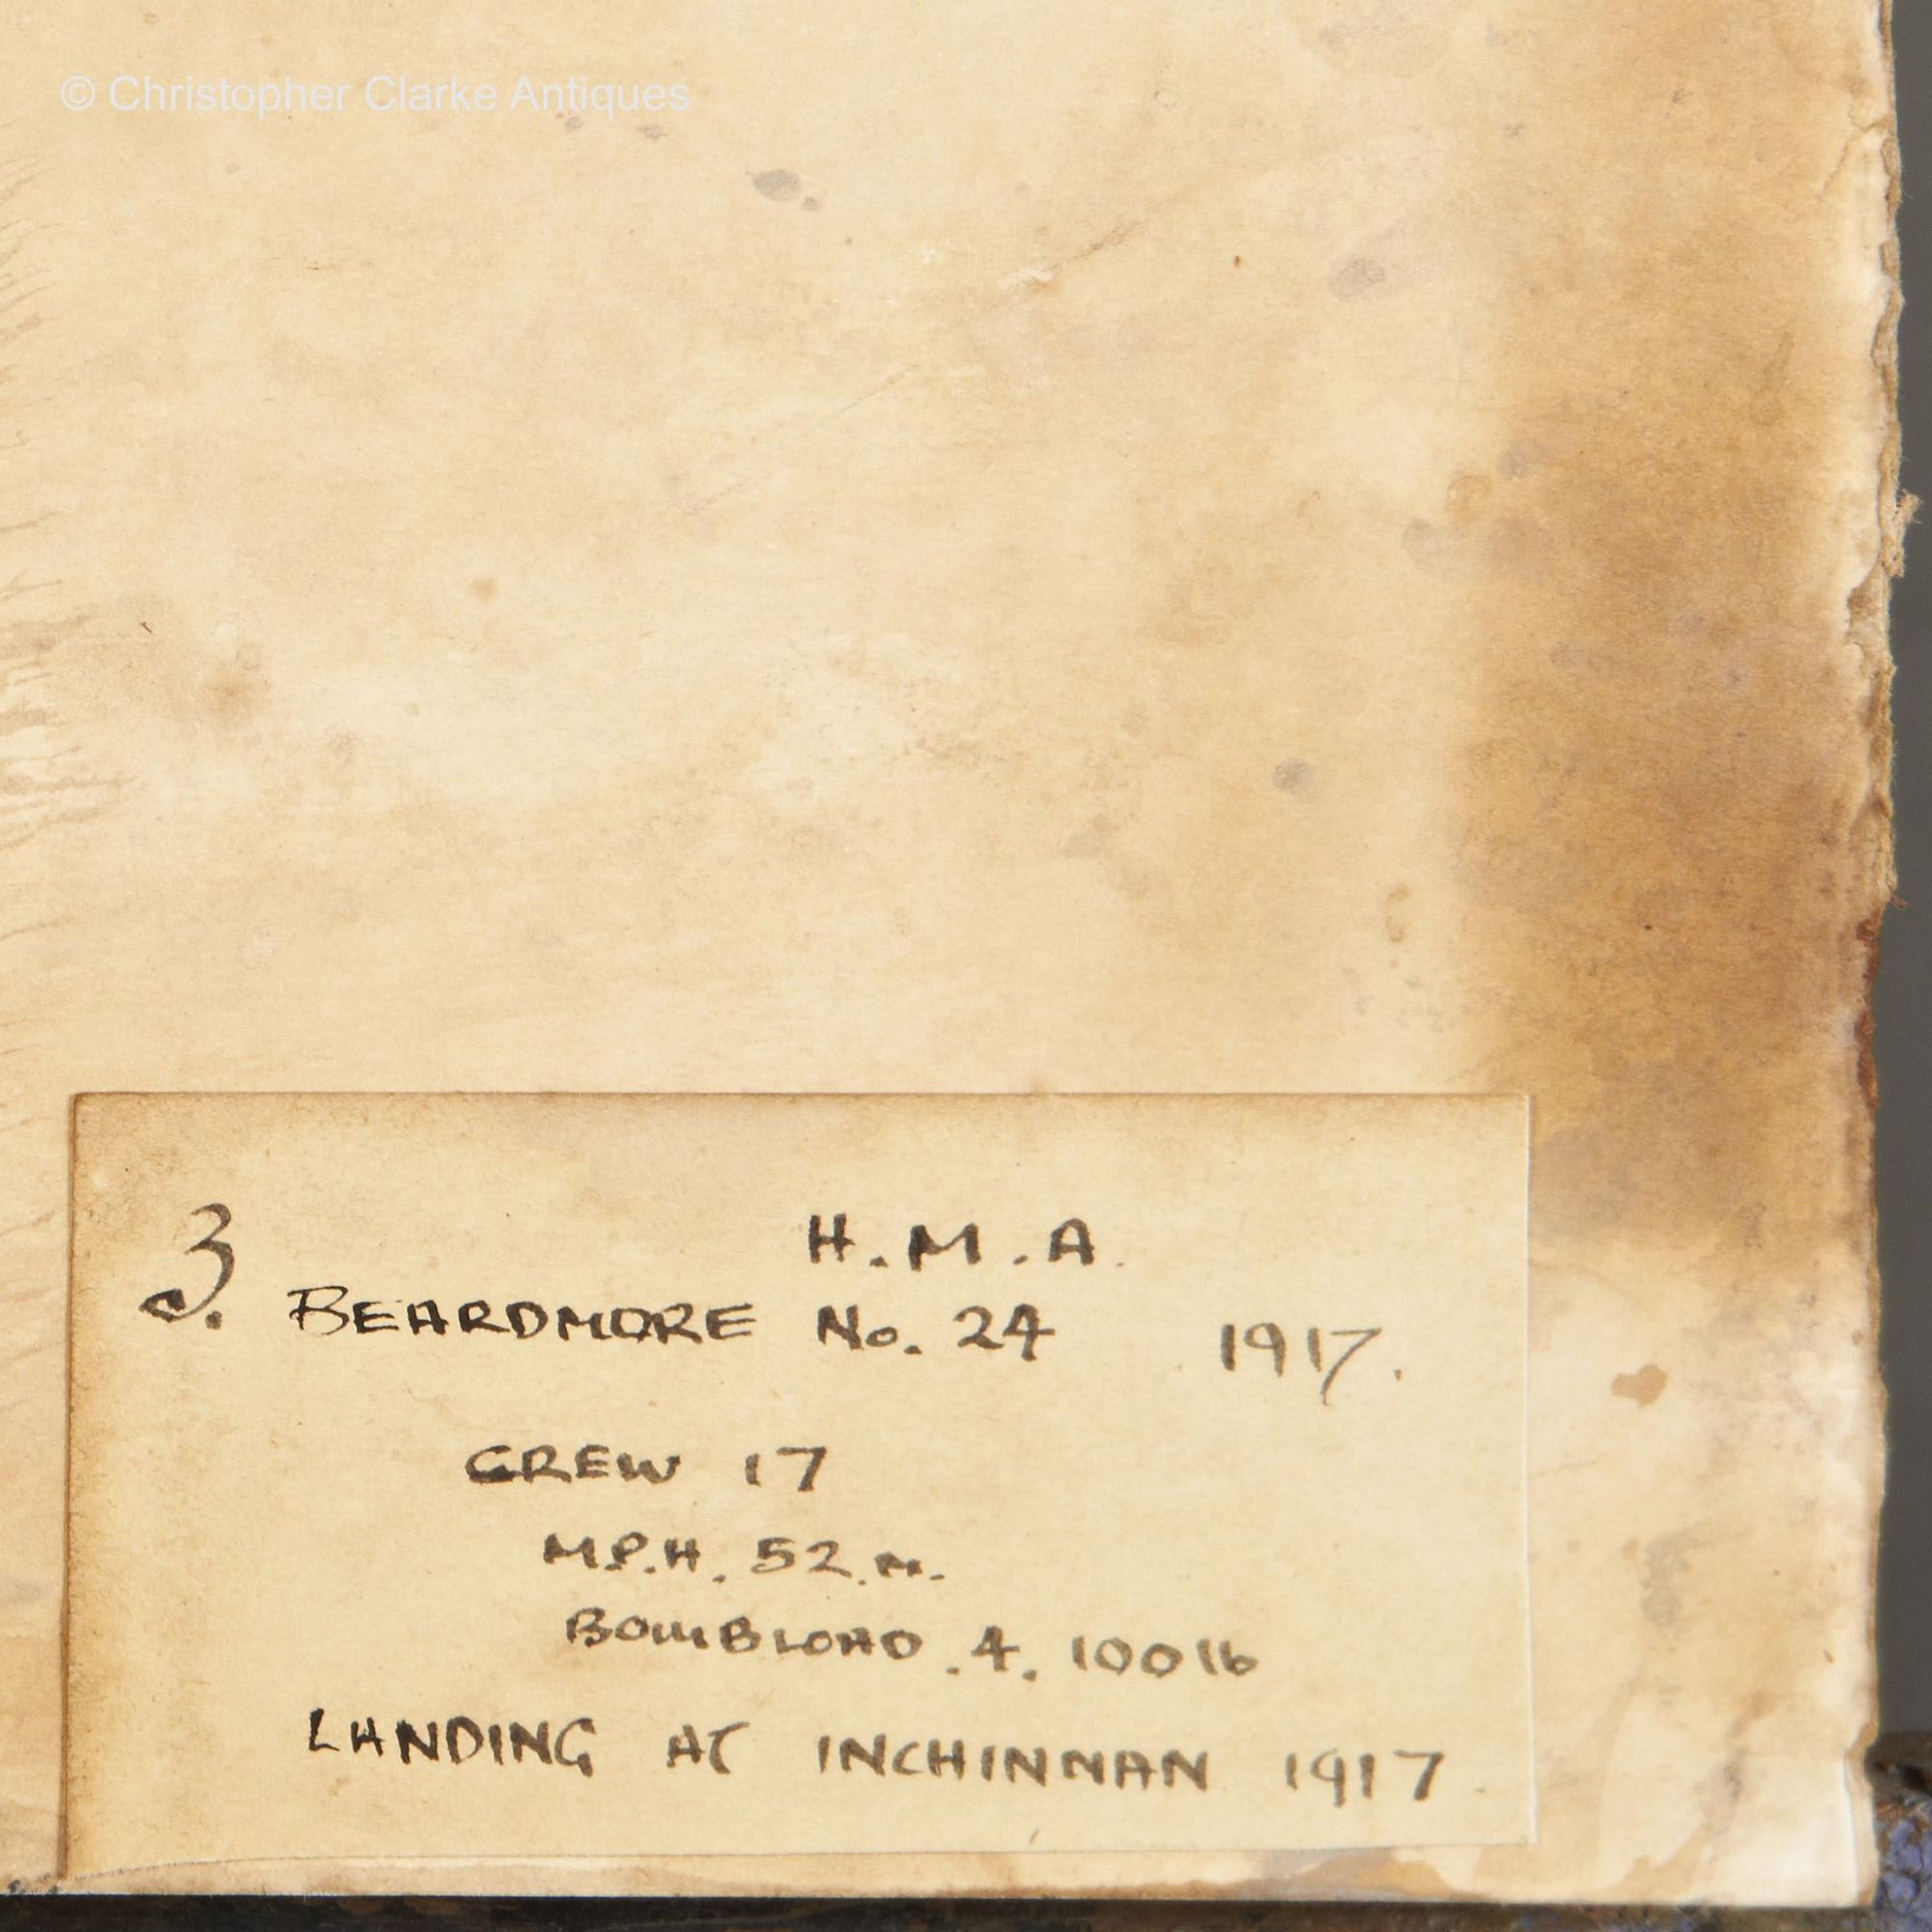 © Christopher Clarke Antiques
H.M.A.
3. BEARDMORE No. 24 1917.
CREW 17
M.P.H. 52.M.
BOMBLOAD .4. 100 lb
LANDING AT INCHINNAN 1917.